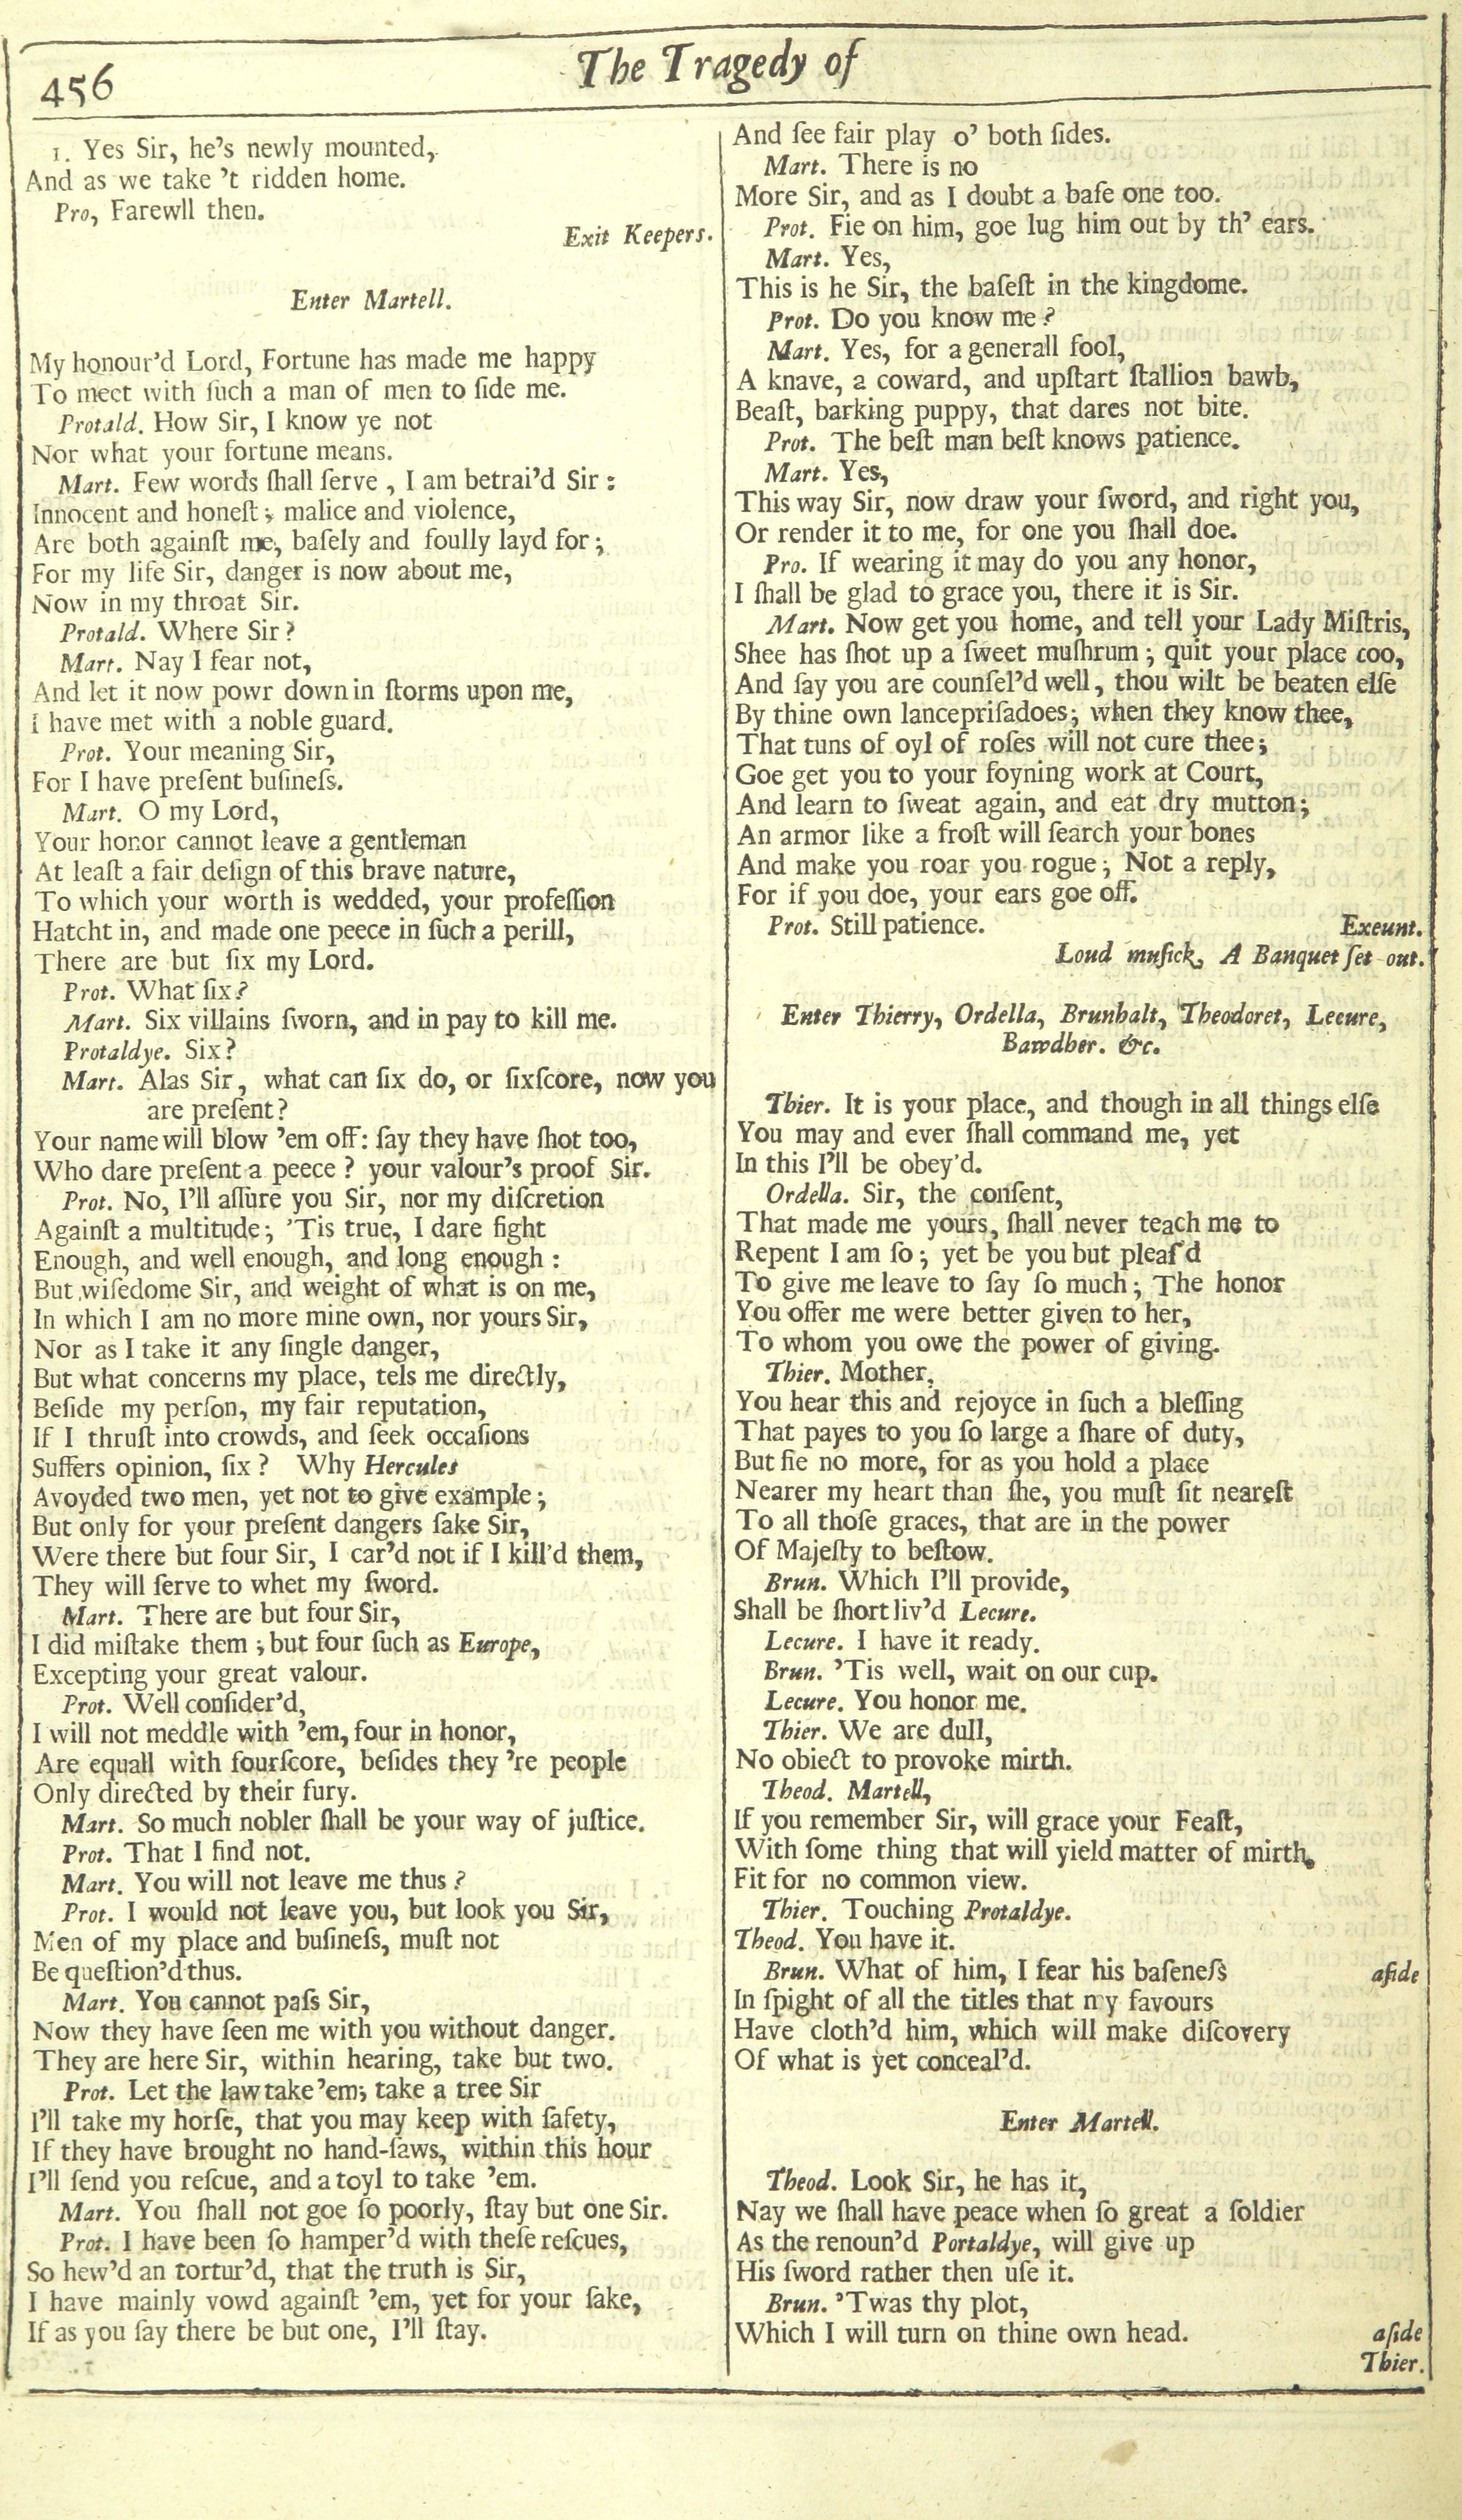 456
The Tragedy of
1. Yes Sir, he's newly mounted,
And as we take 't ridden home.
Pro, Farewll then.
Exit Keepers.
Enter Martell.
My honour'd Lord, Fortune has made me happy
To meet with ſuch a man of men to ſide me.
Protald. How Sir, I know ye not
Nor what your fortune means.
Mart. Few words ſhall ſerve, I am betrai'd Sir:
Innocent and honeſt; malice and violence,
Are both againſt me, baſely and foully layd for;
For my life Sir, danger is now about me,
Now in my throat Sir.
Protald. Where Sir?
Mart. Nay I fear not,
And let it now powr down in ſtorms upon me,
I have met with a noble guard.
Prot. Your meaning Sir,
For I have preſent buſineſs.
Mart. O my Lord,
Your honor cannot leave a gentleman
At leaſt a fair deſign of this brave nature,
To which your worth is wedded, your profeſſion
Hatcht in, and made one peece in ſuch a perill,
There are but ſix my Lord.
Prot. What ſix?
Mart. Six villains ſworn, and in pay to kill me.
Protaldye. Six?
Mart. Alas Sir, what can ſix do, or ſixſcore, now you
are preſent?
Your name will blow 'em off: ſay they have ſhot too,
Who dare preſent a peece? your valour's proof Sir.
Prot. No, I'll aſſure you Sir, nor my diſcretion
Againſt a multitude; 'Tis true, I dare fight
Enough, and well enough, and long enough:
But wiſedome Sir, and weight of what is on me,
In which I am no more mine own, nor yours Sir,
Nor as I take it any ſingle danger,
But what concerns my place, tels me directly,
Beſide my perſon, my fair reputation,
If I thruſt into crowds, and ſeek occaſions
Suffers opinion, ſix? Why Hercules
Avoyded two men, yet not to give example;
But only for your preſent dangers ſake Sir,
Were there but four Sir, I car'd not if I kill'd them,
They will ſerve to whet my ſword.
Mart. There are but four Sir,
I did miſtake them; but four ſuch as Europe,
Excepting your great valour.
Prot. Well conſider'd,
I will not meddle with 'em, four in honor,
Are equall with fourſcore, beſides they 're people
Only directed by their fury.
Mart. So much nobler ſhall be your way of juſtice.
Prot. That I find not.
Mart. You will not leave me thus?
Prot. I would not leave you, but look you Sir,
Men of my place and buſineſs, muſt not
Be queſtion'd thus.
Mart. You cannot paſs Sir,
Now they have ſeen me with you without danger.
They are here Sir, within hearing, take but two.
Prot. Let the law take 'em; take a tree Sir
I'll take my horſe, that you may keep with ſafety,
If they have brought no hand-ſaws, within this hour
I'll ſend you reſcue, and a toyl to take 'em.
Mart. You ſhall not goe ſo poorly, ſtay but one Sir.
Prot. I have been ſo hamper'd with theſe reſcues,
So hew'd an tortur'd, that the truth is Sir,
I have mainly vowd againſt 'em, yet for your ſake,
If as you ſay there be but one, I'll ſtay.
And ſee fair play o' both ſides.
Mart. There is no
More Sir, and as I doubt a baſe one too.
Prot. Fie on him, goe lug him out by th' ears.
Mart. Yes,
This is he Sir, the baſeſt in the kingdome.
Prot. Do you know me?
Mart. Yes, for a generall fool,
A knave, a coward, and upſtart ſtallion bawb,
Beaſt, barking puppy, that dares not bite.
Prot. The beſt man beſt knows patience.
Mart. Yes,
This way Sir, now draw your ſword, and right you,
Or render it to me, for one you ſhall doe.
Pro. If wearing it may do you any honor,
I ſhall be glad to grace you, there it is Sir.
Mart. Now get you home, and tell your Lady Miſtris,
Shee has ſhot up a ſweet muſhrum; quit your place coo,
And ſay you are counſel'd well, thou wilt be beaten elſe
By thine own lancepriſadoes; when they know thee,
That tuns of oyl of roſes will not cure thee;
Goe get you to your foyning work at Court,
And learn to ſweat again, and eat dry mutton;
An armor like a froſt will ſearch your bones
And make you roar you rogue; Not a reply,
For if you doe, your ears goe off.
Prot. Still patience. Exeunt.
Loud muſick, A Banquet ſet out.
Enter Thierry, Ordella, Brunhalt, Theodoret, Lecure,
Bawdber. &c.
Thier. It is your place, and though in all things elſe
You may and ever ſhall command me, yet
In this I'll be obey'd.
Ordella. Sir, the conſent,
That made me yours, ſhall never teach me to
Repent I am ſo; yet be you but pleaſ'd
To give me leave to ſay ſo much; The honor
You offer me were better given to her,
To whom you owe the power of giving.
Thier. Mother,
You hear this and rejoyce in ſuch a bleſſing
That payes to you ſo large a ſhare of duty,
But fie no more, for as you hold a place
Nearer my heart than ſhe, you muſt ſit neareſt
To all thoſe graces, that are in the power
Of Majeſty to beſtow.
Brun. Which I'll provide,
Shall be ſhort liv'd Lecure.
Lecure. I have it ready.
Brun. 'Tis well, wait on our cup.
Lecure. You honor me.
Thier. We are dull,
No obiect to provoke mirth.
Theod. Martell,
If you remember Sir, will grace your Feaſt,
With ſome thing that will yield matter of mirth,
Fit for no common view.
Thier. Touching Protaldye.
Theod. You have it.
Brun. What of him, I fear his baſeneſs aſide
In ſpight of all the titles that my favours
Have cloth'd him, which will make diſcovery
Of what is yet conceal'd.
Enter Martell.
Theod. Look Sir, he has it,
Nay we ſhall have peace when ſo great a ſoldier
As the renoun'd Portaldye, will give up
His ſword rather then uſe it.
Brun. 'Twas thy plot,
Which I will turn on thine own head. aſide
Thier.